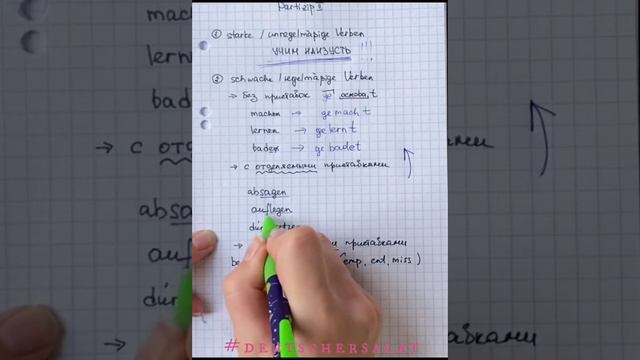 Partizip II
① starke / unregelmäßige Verben
УЧИМ НАИЗУСТЬ !!!
② schwache / regelmäßige Verben
→ без приставок ge основа, t
machen → ge mach t
lernen → ge lern t
baden → ge badet
→ с отделяемыми приставками
absagen
auflegen
→ приставками
emp, ent, miss)
#DEUTSCHERSALAT